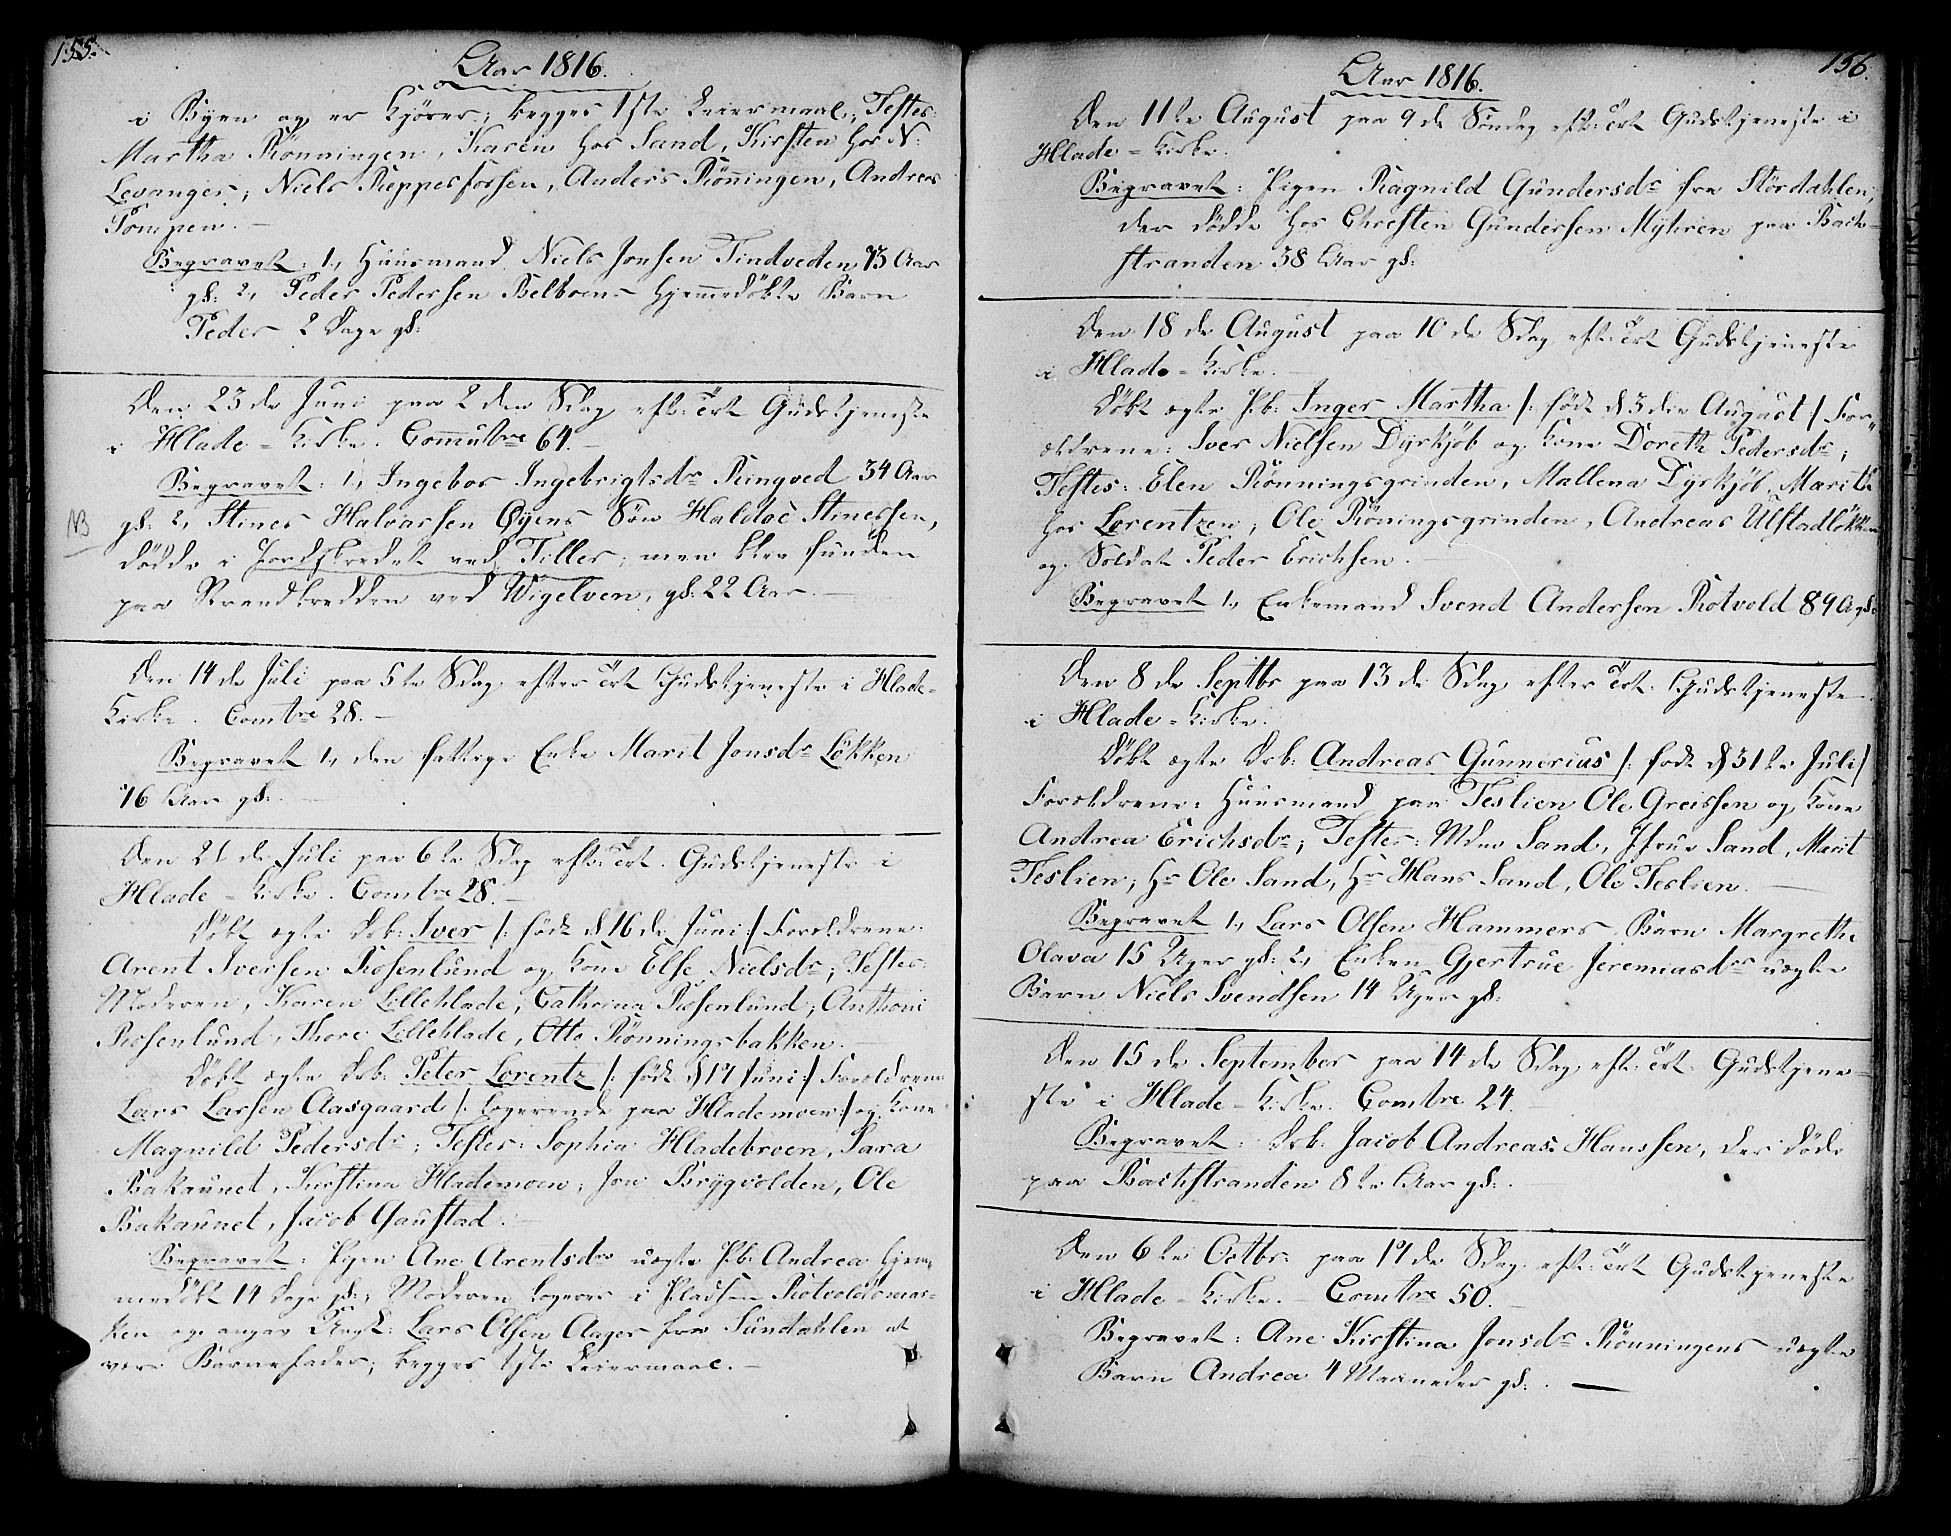 155.
Aar 1816.
i Byen og er Kjører; begges 1ste Leiermaal; Testes:
Martha Rönningen, Karen hos Sand, Kirsten hos N:
Levanger; Niels Reppesforsen, Anders Röningen, Andreas
Pompen. —
Begravet: 1, Huusmand Niels Jonsen Tindveden 73 Aar
gl: 2, Peder Pedersen Belboens hjemmedöbte Barn
Peder 2 Dage gl:
Den 23de Juni paa 2den Sdag eft: Trt Gudstjeneste
i Hlade-Kirke. Commütre 64. —
NB
Begravet: 1, Ingebor Ingebrigtsdr Ringved 34 Aar
gl: 2, Stiner Halvarsen Øyens Sön Haldoe Stinersen,
dödde i Jordskredet ved Tiller; men blev funden
paa Strandbredden ved Wigelven, gl: 22 Aar. —
Den 14de Juli paa 5te Sdag efter Trt Gudstjeneste i Hlade-
Kirke. Comtre 28. —
Begravet 1, den fattige Enke Marit Jonsdr Lökken
76 Aar gl: —
Den 21de Juli paa 6te Sdag eft: Trt. Gudstjeneste i
Hlade-Kirke. Comtre 28. —
Döbt ægte Drb: Iver /: födt d 16de Juni :/ Forældrene:
Arent Iversen Rosenlund og Kone Else Nielsdr; Testes:
Moderen, Karen Lillehlade, Cathrina Rosenlund; Anthoni
Rosenlund, Thore Lillehlade, Otto Rönningsbakken. —
Döbt ægte Drb: Peter Lorentz /: födt d 17 Juni :/ Forældrene
Lars Larsen Aasgaard /: logerende paa Hlademoen :/ og Kone
Magnild Pedersdr; Testes: Sophia Hladebroen, Sara
Bakaunet, Kirstina Hlademoen; Jon Brygvolden, Ole
Bakaunet, Jacob Gaustad. —
Begravet: Pigen Ane Arentsdrs uægte Pb: Andrea hjem,
medöbt 14 Dage gl:; Moderen logerer i Pladsen Rotvoldsmar-
ken og angav Ungk: Lars Olsen Aager fra Sundahlen at
være Barnefader; begges 1ste Leiermaal. —
156.
Aar 1816.
Den 11te August paa 9de Söndag eft: Trt Gudstjeneste i
Hlade-Kirke.
Begravet: Pigen Ragnild Gundersdr fra Stördahlen,
der dödde hos Christen Gundersen Myhren paa Bach-
stranden 38 Aar gl:
Den 18de August paa 10de Sdag eft: Trt Gudstjeneste
i Hlade-Kirke. —
Döbt ægte Pb: Inger Martha /: födt d 3die August / For-
ældrene: Iver Nielsen Dyrkjöb og Kone Doreth Pedersdr;
Testes: Elen Rönningsgrinden, Mallena Dyrkjöb, Marith
hos Lorentzen; Ole Röningsgrinden, Andreas Ulstadlökken
og Soldat Peder Erichsen. —
Begravet 1, Enkemand Svend Andersen Rotvold 89 A gl:
Den 8de Septbr paa 13de Sdag efter Trt. Gudstjeneste
i Hlade-Kirke.
Döbt ægte Drb: Andreas Gunnerius /: födt d 31te Juli /
Forældrene: Huusmand paa Teslien Ole Greissen og Kone
Andrea Erichsdr; Testes: Mdme Sand, Jfrue Sand, Marit
Teslien; Hr Ole Sand, Hr Hans Sand, Ole Teslien. —
Begravet 1, Lars Olsen Hammers Barn Margrethe
Olava 15 Uger gl: 2, Enken Gjertrue Jeremiasdrs uægte
Barn Niels Svendsen 14 Uger gl:
Den 15de September paa 14de Sdag eft: Trt. Gudstjene-
ste i Hlade-Kirke. Comtre 24. —
Begravet: Drb: Jacob Andreas Hanssen, der döde
paa Bachstranden 8te Aar gl: —
Den 6te Octbr. paa 17de Sdag eft: Trt Gudstjeneste
i Hlade-Kirke. — Comtre 50. —
Begravet: Ane Kirstina Jonsdr Rönningens uægte
Barn Andrea 4 Maaneder gl: . —